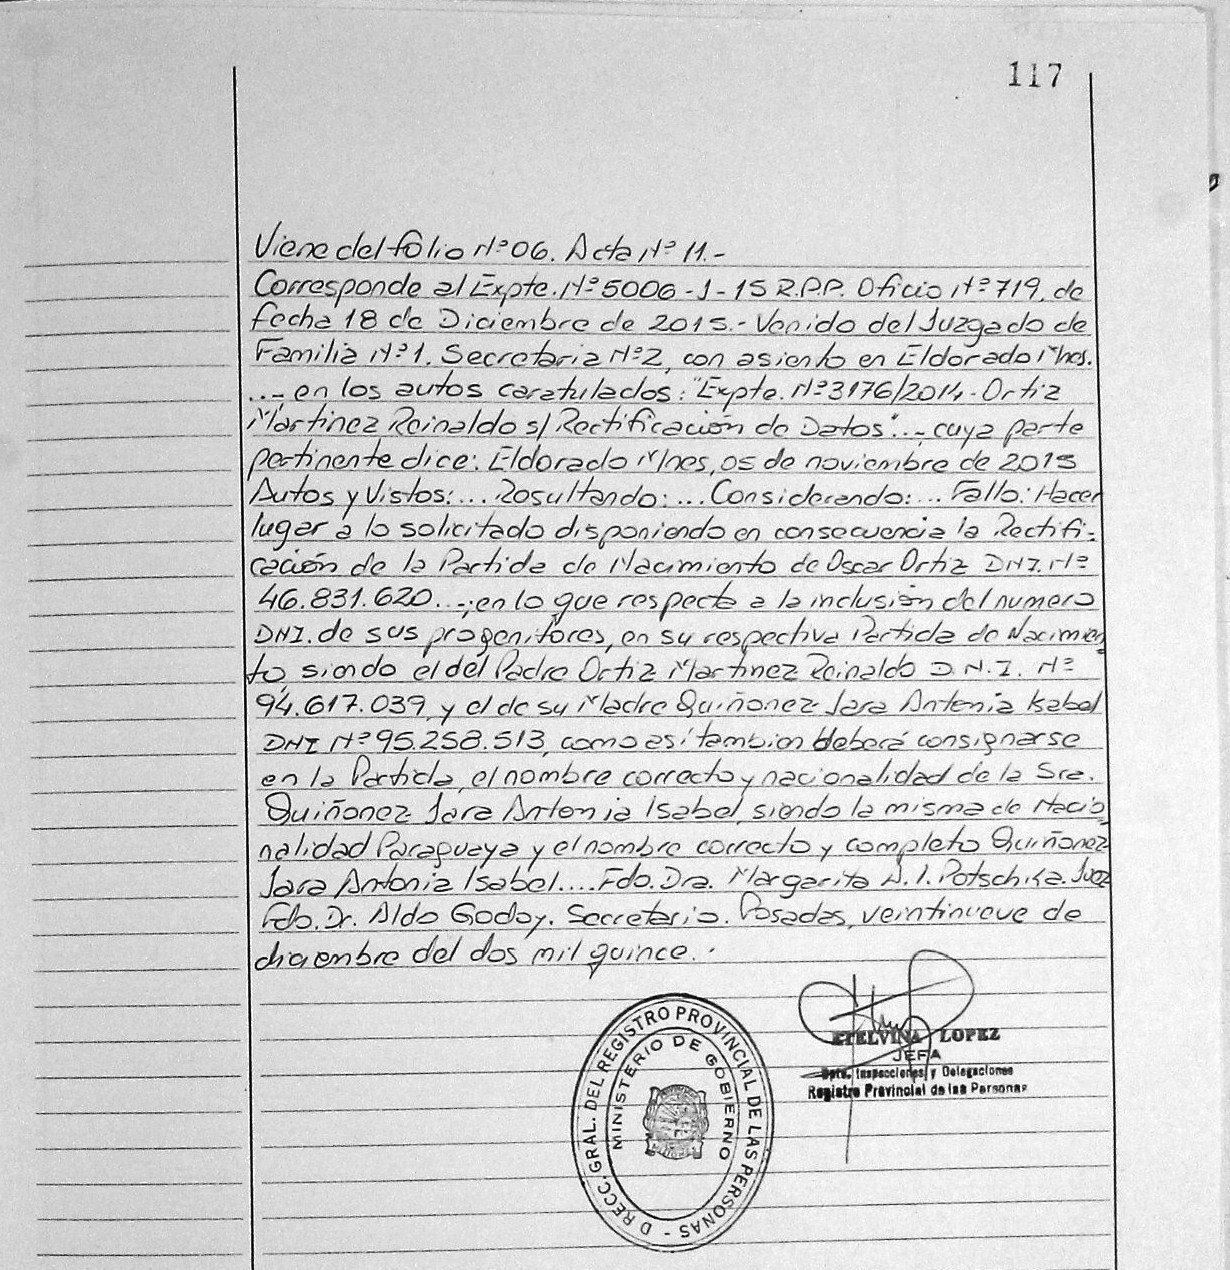 117
Viene del folio Nº 06. Acta Nº 11.-
Corresponde al Expte. Nº 5006-J-15 R.P.P. Oficio Nº 719, de
fecha 18 de Diciembre de 2015.- Venido del Juzgado de
Familia Nº 1. Secretaria Nº 2, con asiento en Eldorado Mnes.
...- en los autos caratulados: "Expte. Nº 3176/2014- Ortiz
Martinez Reinaldo s/ Rectificación de Datos"...-, cuya parte
pertinente dice: Eldorado Mnes, 05 de noviembre de 2015
Autos y Vistos:... Resultando:... Considerando:... Fallo: Hacer
lugar a lo solicitado disponiendo en consecuencia la Rectifi-
cación de la Partida de Nacimiento de Oscar Ortiz DNI. Nº
46.831.620...-; en lo que respecta a la inclusión del numero
DNI. de sus progenitores, en su respectiva Partida de Nacimien
to, siendo el del Padre Ortiz Martinez Reinaldo D.N.I. Nº
94.617.039, y el de su Madre Quiñonez Jara Antonia Isabel
DNI Nº 95.258.513, como así tambien deberá consignarse
en la Partida, el nombre correcto y nacionalidad de la Sra.
Quiñonez Jara Antonia Isabel, siendo la misma de Nacio
nalidad Paraguaya y el nombre correcto y completo Quiñonez
Jara Antonia Isabel.... Fdo. Dra. Margarita N. I. Potschka. Juez
Fdo. Dr. Aldo Godoy. Secretario. Posadas, veintinueve de
diciembre del dos mil quince.-
ETELVINA LOPEZ
JEFA
Dpto. Inspecciones y Delegaciones
Registro Provincial de las Personas
D RECC. GRAL. DEL REGISTRO PROVINCIAL DE LAS PERSONAS -
MINISTERIO DE GOBIERNO